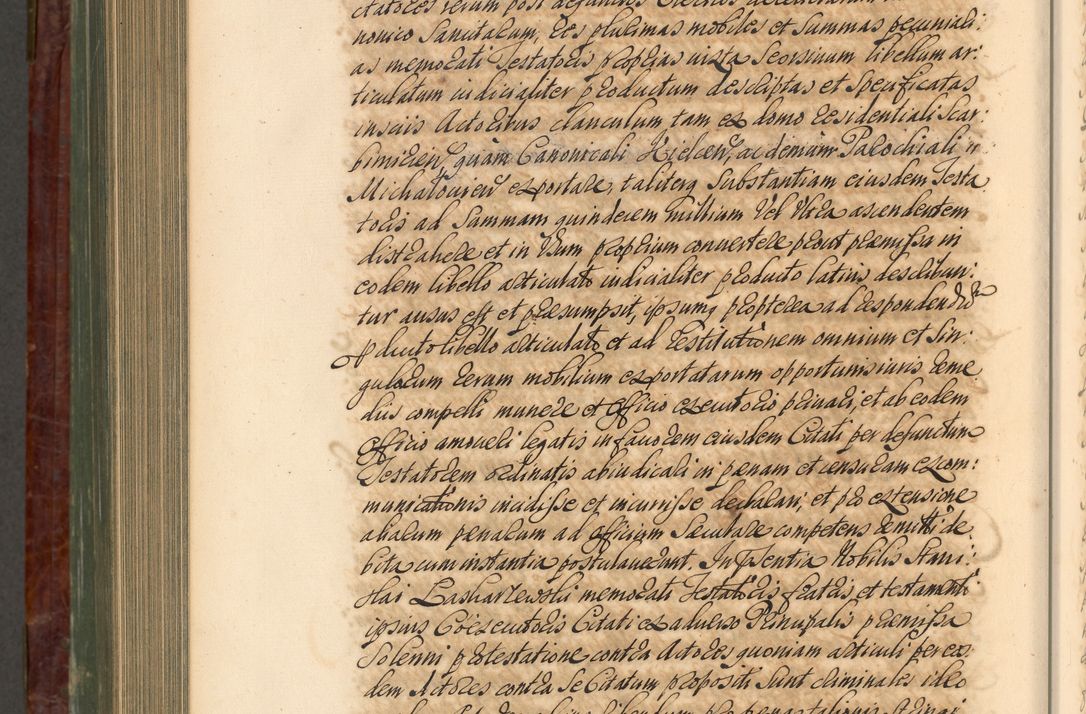 ctatores rerum post defunctum
nonico Sanitarum, res plurimas mobiles et Summas pecuniari:
as memorati Testatoris proprias iuxta Seorsivum libellum ar:
ticulatum iudicialiter productum descriptas et Specificatas
insciis Actoribus clanculum tam ex domo residentiali Scar:
bimirien, quam Canonicali Kielcen, ac demum Parochiali in
Michałovien exportare, taliterq Substantiam eiusdem Testa
toris ad Summam quindecem millium Vel Ultra ascendentem
distrahere et in Usum proprium convertere prout præmissa in
eodem libello articulato iudicialiter producto latius describun:
tur ausus est et præsumpsit, ipsumq propterea ad respondendum
producto libello articulato et ad restitutionem omnium et Sin:
gularum rerum mobilium exportatarum opportunis iuris reme
diis compelli munere et officio executorio privari, et ab eodem
officio amoveri legatis in favorem eiusdem Citati per defunctum
Testatorem ordinatis abiudicari in pœnam et censuram excom:
municationis incidisse et incurrisse declarari, et pro extensione
aliarum pœnarum ad officium Sæculare competens remitti de
bita cum instantia postularunt. In Præsentia Nobilis Stani:
slai Lasharzewski memorati Testatoris fratris, et testamenti
ipsius Coexecutoris Citati ex adverso Principalis præmissa
Solenni protestatione contra Actores quoniam articuli per eos:
dem Actores contra Se Citatum propositi Sunt criminales ideo